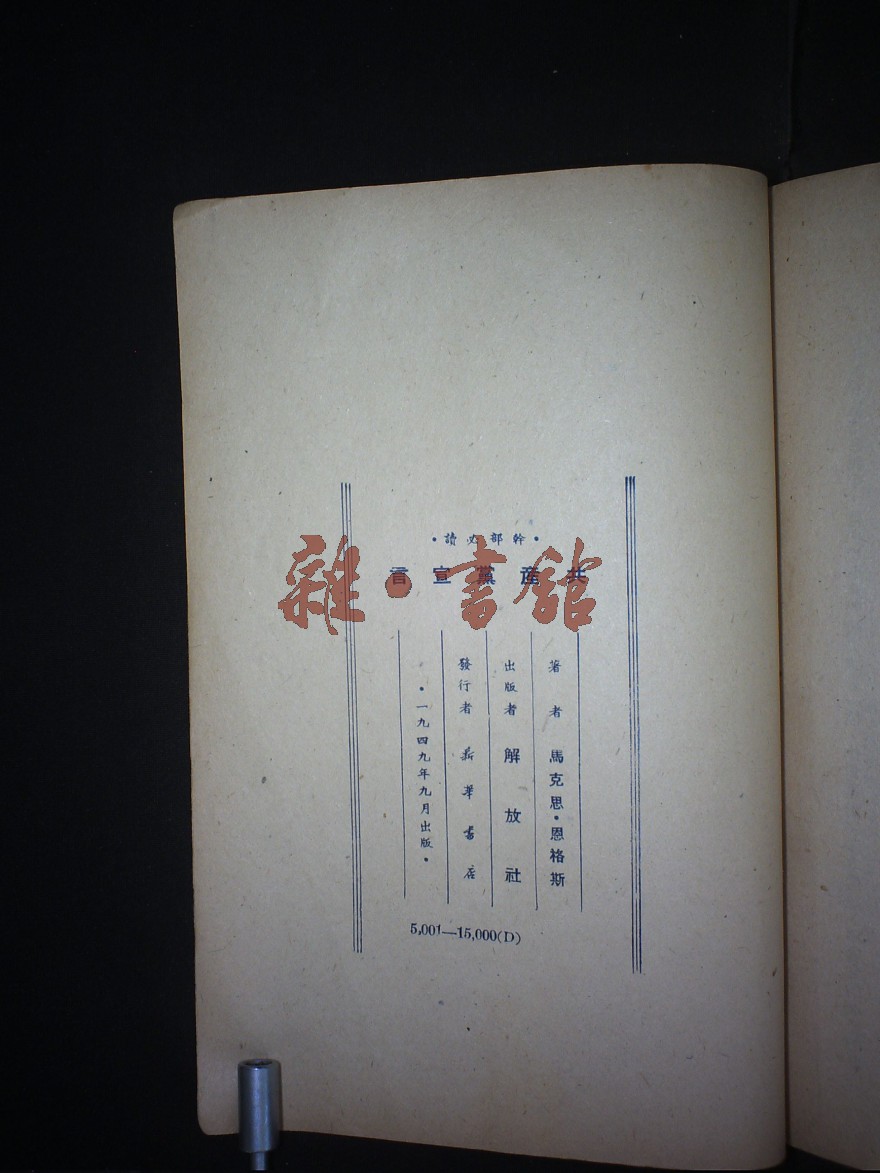 •幹部必讀•
共產黨宣言
著者 馬克思•恩格斯
出版者 解放社
發行者 新華書店
•一九四九年九月出版•
5,001—15,000(D)
雜•書館